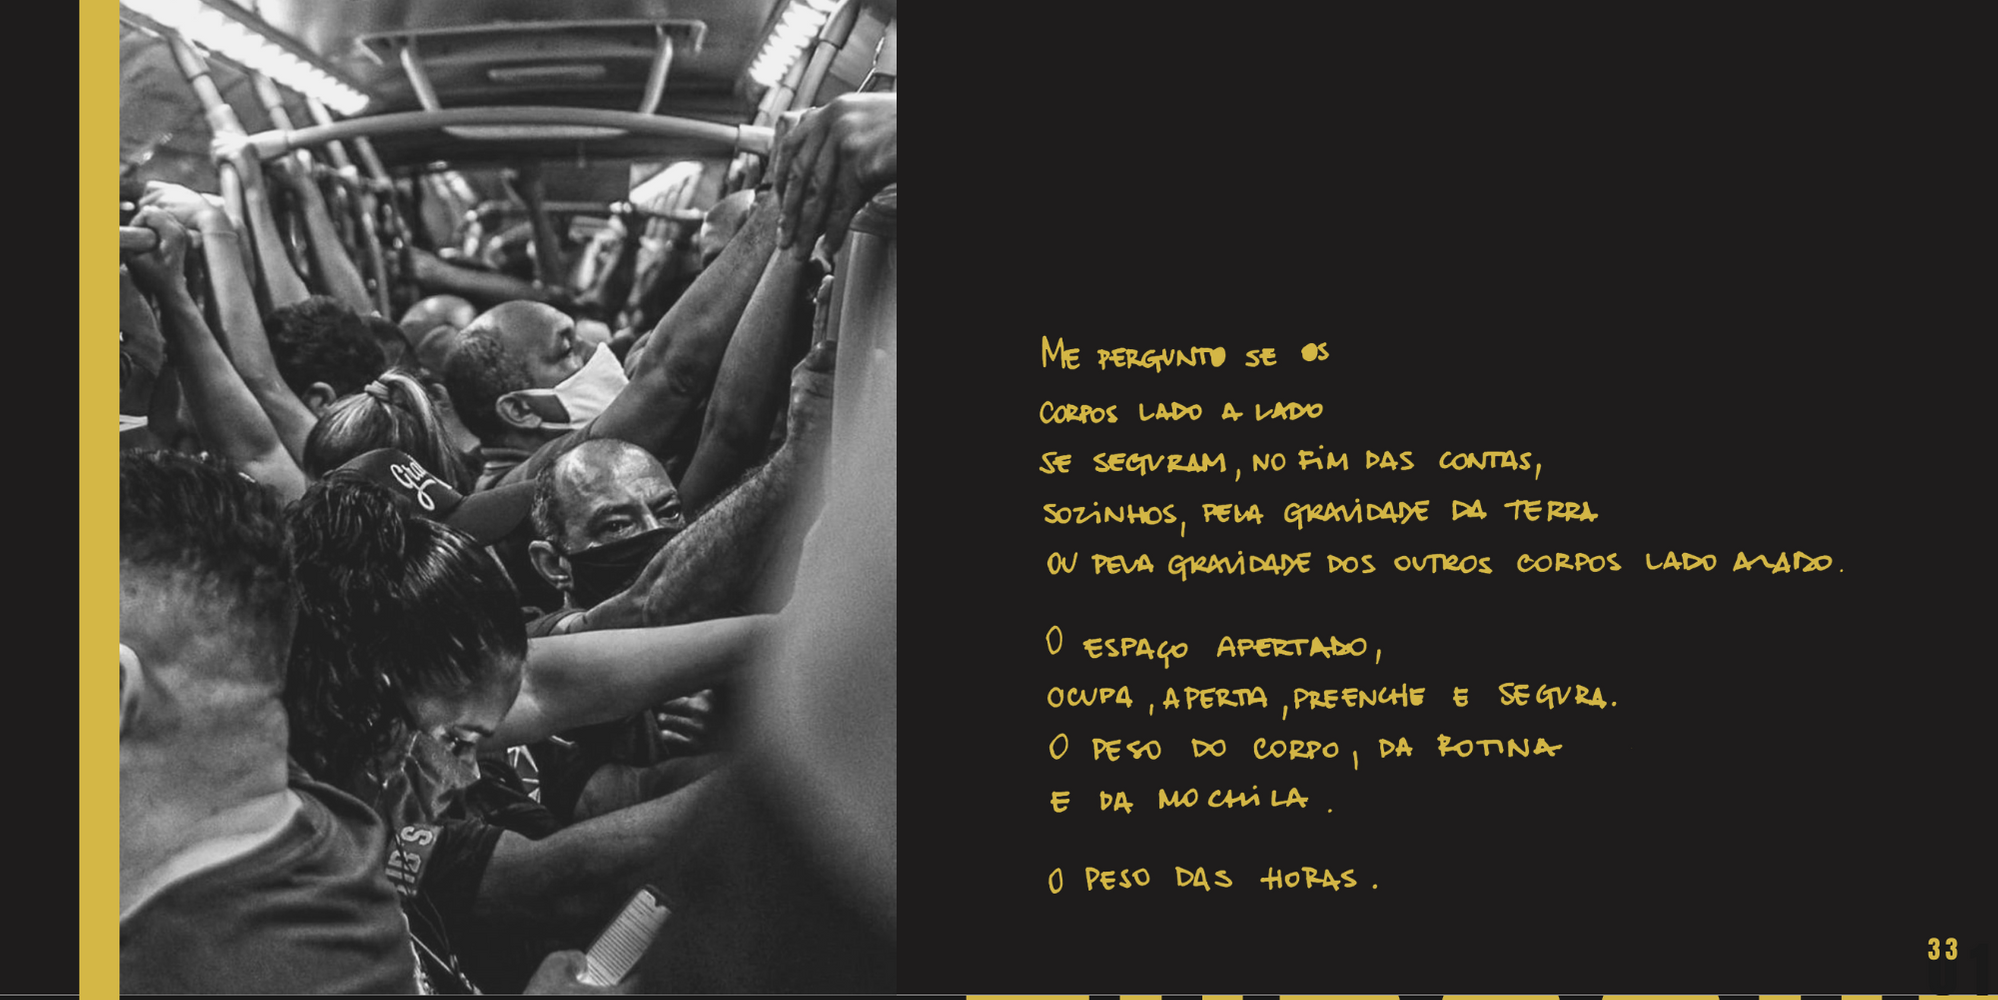 Giral
IBIS
ME PERGUNTO SE OS
CORPOS LADO A LADO
SE SEGURAM, NO FIM DAS CONTAS,
SOZINHOS, PELA GRAVIDADE DA TERRA
OU PELA GRAVIDADE DOS OUTROS CORPOS LADO A LADO.
O ESPAÇO APERTADO,
OCUPA, APERTA, PREENCHE E SEGURA.
O PESO DO CORPO, DA ROTINA
E DA MOCHILA.
O PESO DAS HORAS.
33